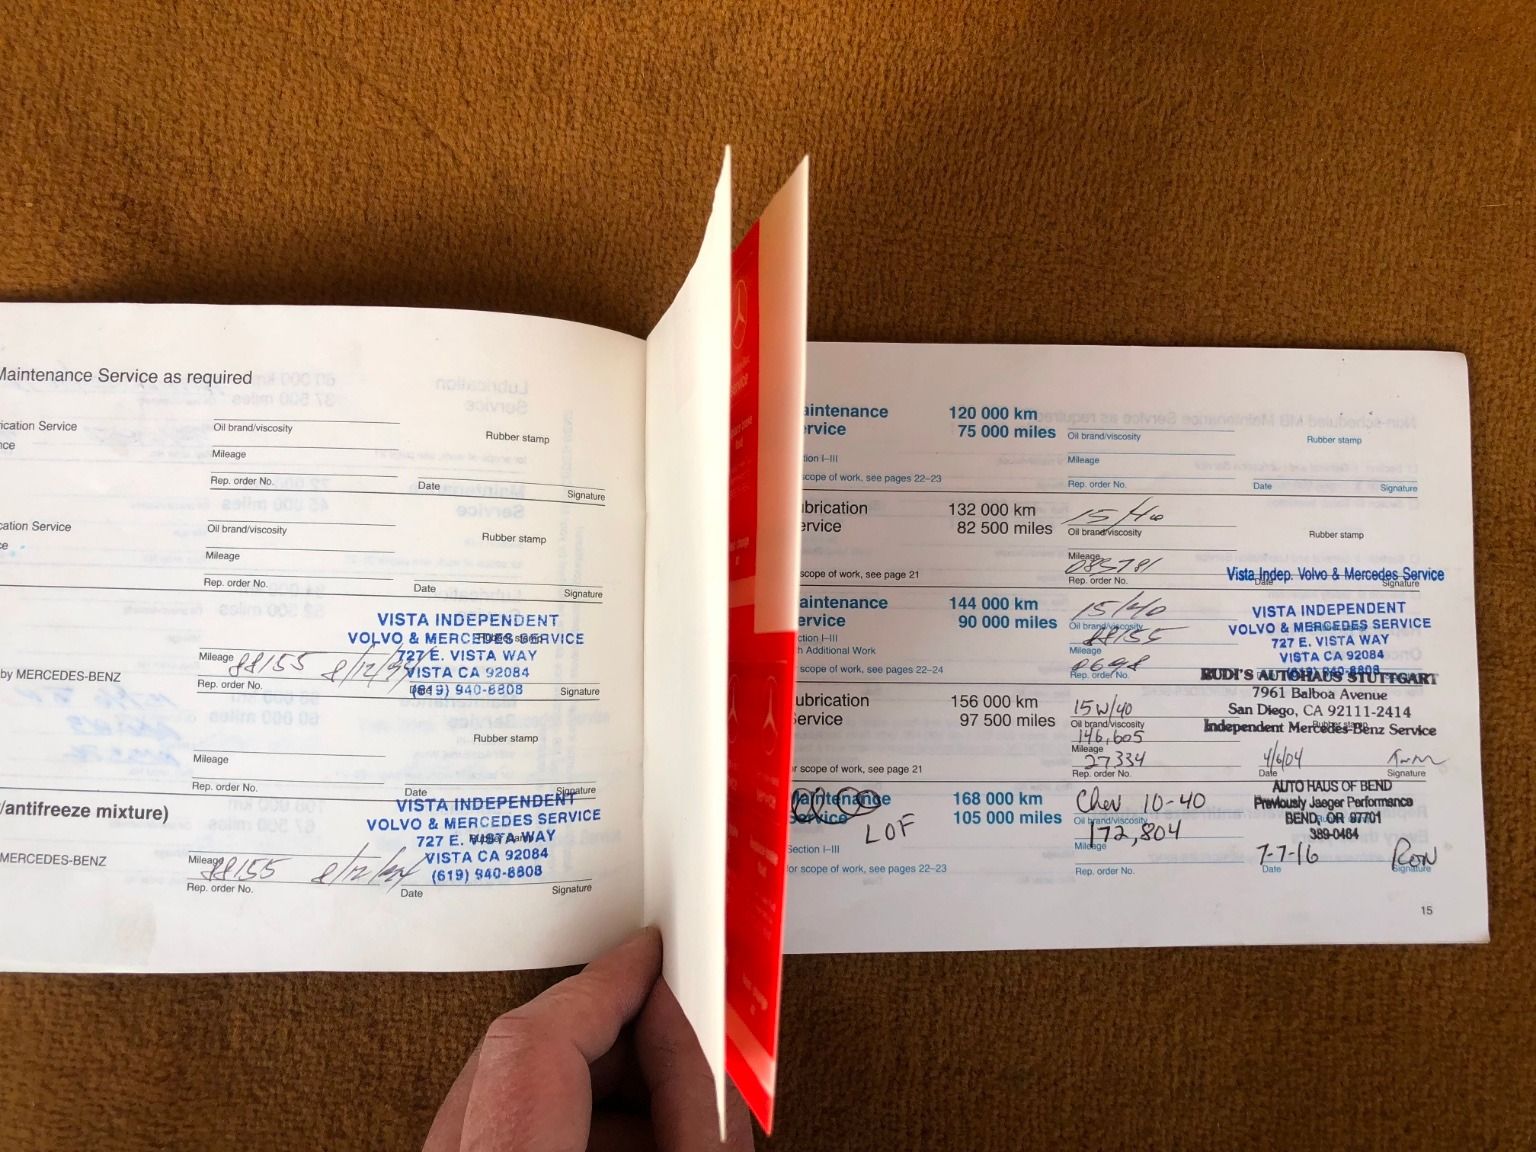 Maintenance Service as required
ication Service
nce
Oil brand/viscosity
Rubber stamp
Mileage
Rep. order No.
Date
Signature
cation Service
e
Oil brand/viscosity
Rubber stamp
Mileage
Rep. order No.
Date
Signature
VISTA INDEPENDENT
VOLVO & MERCEDES SERVICE
727 E. VISTA WAY
VISTA CA 92084
(619) 940-8808
by MERCEDES-BENZ
Mileage 88155
Rep. order No.
Date
Signature
Rubber stamp
Mileage
Rep. order No.
Date
Signature
/antifreeze mixture)
VISTA INDEPENDENT
VOLVO & MERCEDES SERVICE
727 E. VISTA WAY
VISTA CA 92084
(619) 940-8808
MERCEDES-BENZ
Mileage 88155
Rep. order No.
Date
Signature
aintenance 120 000 km
ervice 75 000 miles
Oil brand/viscosity
Rubber stamp
tion I–III
Mileage
scope of work, see pages 22–23
Rep. order No.
Date
Signature
ubrication 132 000 km
ervice 82 500 miles
15/40
Oil brand/viscosity
Rubber stamp
Mileage
085781
scope of work, see page 21
Rep. order No.
Date
Signature
Vista Indep. Volvo & Mercedes Service
aintenance 144 000 km
ervice 90 000 miles
15/40
Oil brand/viscosity
88155
ction I–III
h Additional Work
Mileage
8698
scope of work, see pages 22–24
Rep. order No.
VISTA INDEPENDENT
VOLVO & MERCEDES SERVICE
727 E. VISTA WAY
VISTA CA 92084
(619) 940-8808
ubrication 156 000 km
ervice 97 500 miles
15W/40
Oil brand/viscosity
146,605
Mileage
27334
or scope of work, see page 21
Rep. order No.
RUDI'S AUTOHAUS STUTTGART
7961 Balboa Avenue
San Diego, CA 92111-2414
Independent Mercedes-Benz Service
Rubber stamp
4/6/04
Date
Signature
aintenance 168 000 km
ervice 105 000 miles
LOF
Chev 10-40
Oil brand/viscosity
172,804
Section I–III
Mileage
for scope of work, see pages 22–23
Rep. order No.
AUTO HAUS OF BEND
Previously Jaeger Performance
BEND, OR 97701
389-0464
7-7-16
Ron
Date
Signature
15